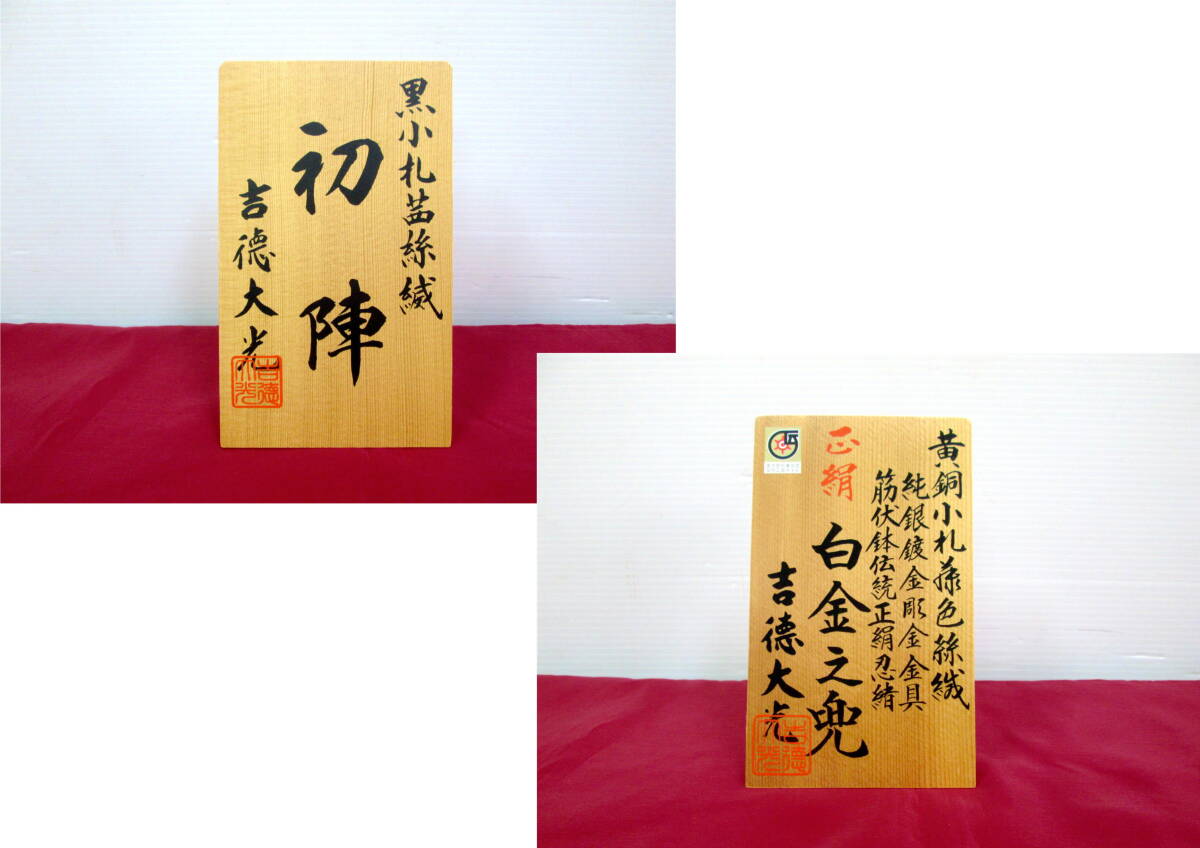 黒小札茜絲縅
初陣
吉德大光
吉德大光
黄銅小札萌色絲縅
純銀鍍金彫金金具
筋伏鉢伝統正絹忍緒
正絹
白金之兜
吉德大光
吉德大光